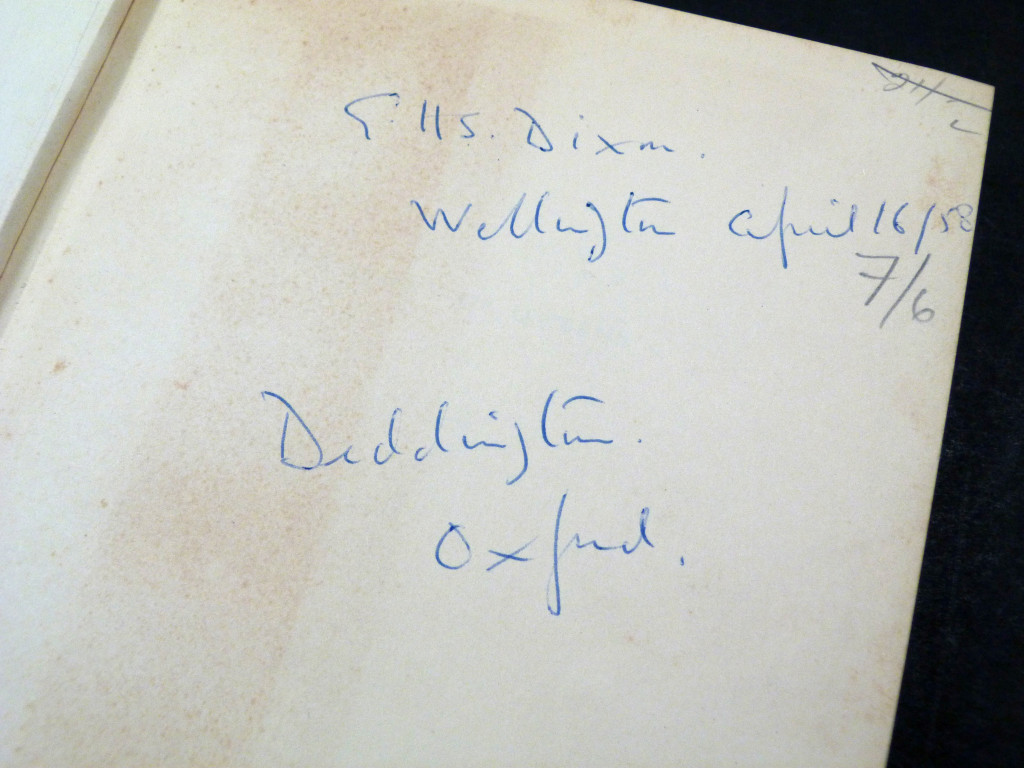 HS. Dixon.
Wellington April 16/58
7/6
Deddington.
Oxford.